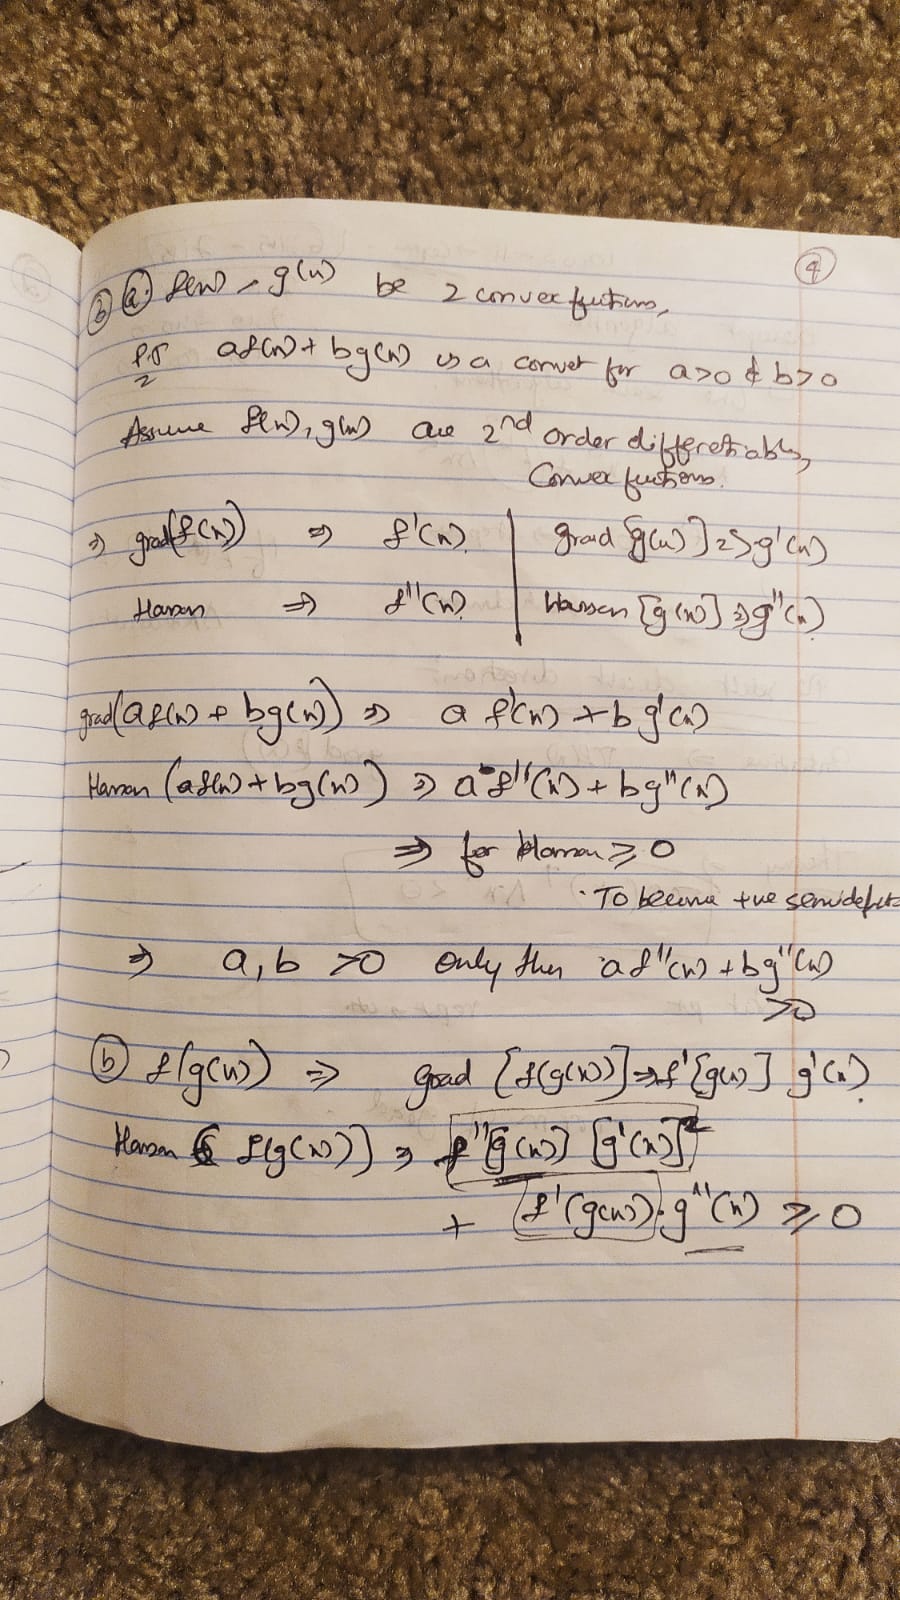 ④
③ ⓐ. f(x), g(x) be 2 convex fuctions,
P.T af(x) + bg(x) is a convex for a>0 & b>0
Assume f(x), g(x) are 2nd order differentiable,
Convex fuctions.
⇒ grad(f(x)) ⇒ f'(x) | grad [g(x)] => g'(x)
Hessian ⇒ f''(x) | Hessian [g(x)] ⇒ g''(x)
grad(af(x) + bg(x)) ⇒ a f'(x) + b g'(x)
Hessian (af(x) + bg(x)) ⇒ a f''(x) + bg''(x)
⇒ for Hessian ≥ 0
· To become +ve semidefinite
⇒ a, b >0 only then af''(x) + bg''(x)
>0
ⓑ f(g(x)) ⇒ grad [f(g(x))] ⇒ f'[g(x)] g'(x)
Hessian f(g(x))] ⇒ f''[g(x)] [g'(x)]²
+ f'(g(x)). g''(x) ≥ 0